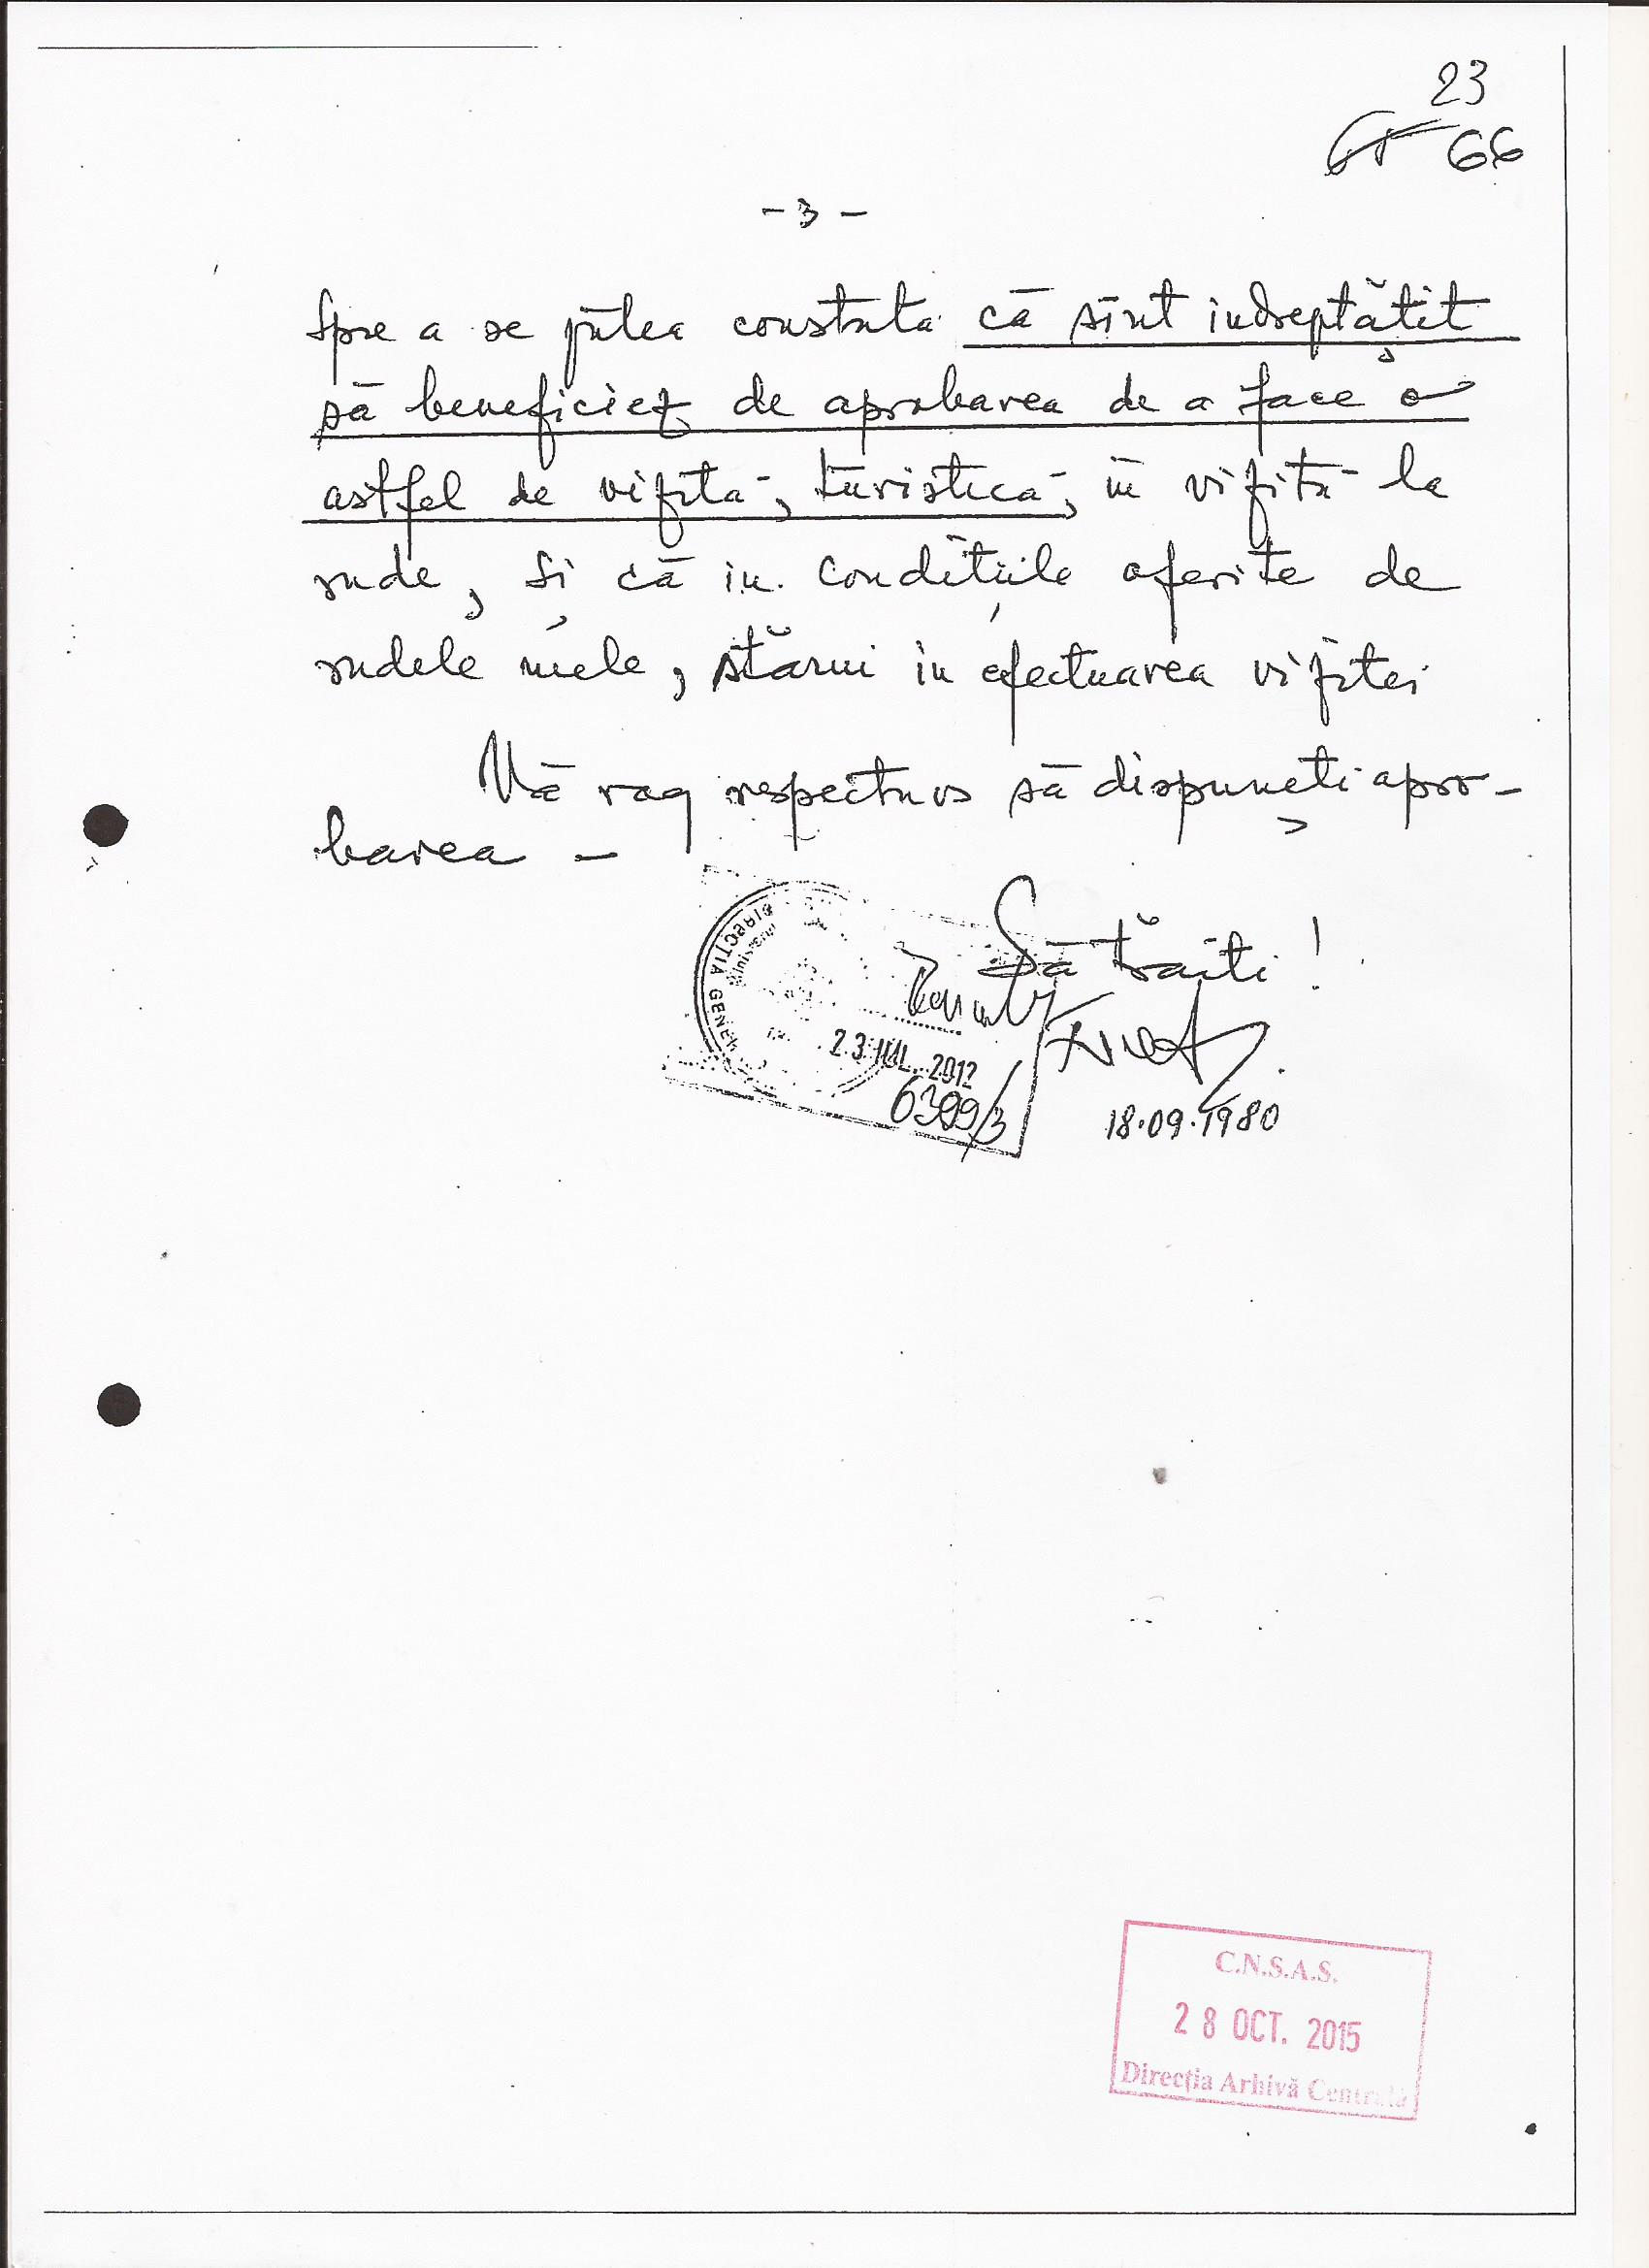 23
66
- 3 -
Spre a se putea constata că sînt indreptățit
să beneficiez de aprobarea de a face o
astfel de vizită, turistică, in vizită la
rude, și că in condițiile oferite de
rudele mele, stărui in efectuarea vizitei
Vă rog respectuos să dispuneți apro-
barea -
Să trăiti !
DIRECȚIA GENER
23 IUL. 2012
6399/3
18.09.1980
C.N.S.A.S.
28 OCT. 2015
Direcția Arhivă Centrală